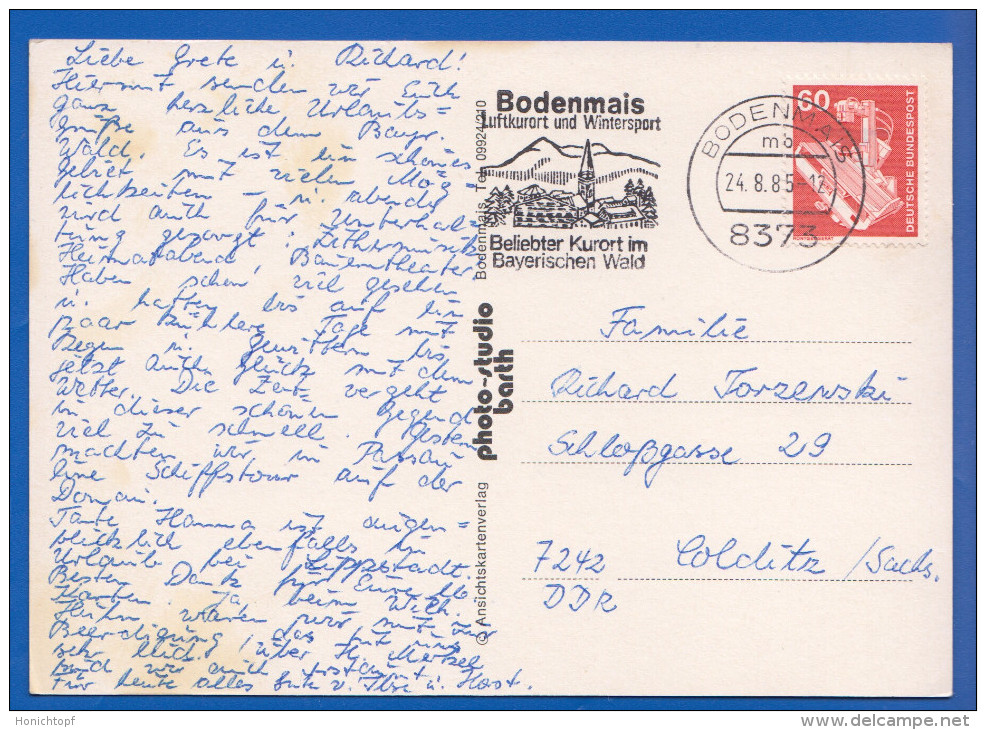 Liebe Grete u. Richard!
Hiermit senden wir Euch
ganz herzliche Urlaubs-
grüße aus dem Bayr.
Wald. Es ist ein schönes
Gebiet mit vielen Mög-
lichkeiten – u. abends
wird auch für Unterhal=
tung gesorgt: Zithermusik
Heimatabend, Bauerntheater
Haben schon viel gesehen
u. hatten bis auf ein
paar kühlere Tage mit
Regen u. Gewittern bis
jetzt auch Glück mit dem
Wetter. Die Zeit vergeht
in dieser schönen Gegend
viel zu schnell. Gestern
machten wir in Passau
eine Schiffstour auf der
Donau.
Tante Hanna ist augen=
blicklich ebenfalls in
Urlaub bei Lippstadt.
Besten Dank für Eure
Karten. Ja, beim Wilh.
Huhn waren wir mit zur
Beerdigung, das tut uns
sehr leid! über H.
sind wir auch erstaunt.
Für heute alles Gute v. Ilse u. Horst.
Bodenmais
Luftkurort und Wintersport
Beliebter Kurort im
Bayerischen Wald
BODENMAIS
mb
24.8.85-12
8373
60
DEUTSCHE BUNDESPOST
RÖNTGENGERÄT
© Ansichtskartenverlag photo-studio barth Bodenmais Tel. 09924/210
Familie
Richard Torzewski
Schloßgasse 29
7242 Colditz /Sachs.
DDR
Honichtopf
www.delcampe.net